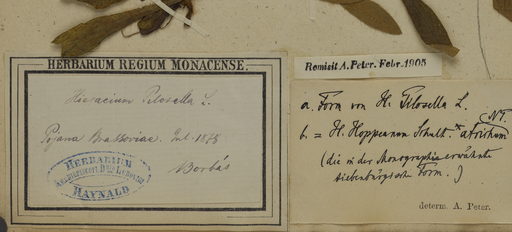 HERBARIUM REGIUM MONACENSE.
Hieracium Pilosella L.
Pojana Brassoviae. Jul. 1878
Borbás
HERBARIUM
HAYNALD
Remisit A. Peter. Febr. 1905
a. Form von H. Pilosella L.
b. = H. Hoppeanum Schult. * atrichum NP.
(die in der Monographie erwähnte
siebenbürgische Form.)
determ. A. Peter.